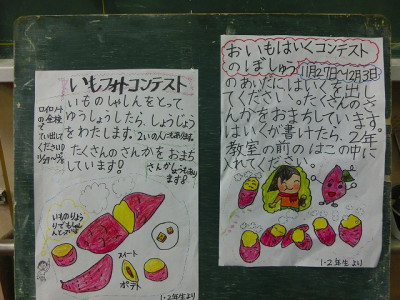 いもフォトコンテスト
いものしゃしんをとって
ゆうしょうしたら、しょうじょう
をわたします。2いの人もあります。
たくさんのさんかをおまち
しています!
さんかしょうもあり
ます!
ロイロノート
の全校
でていし出して
ください
いものりょう
りでもしゃし
んとってOK
スイート
ポテト
1・2年生より
おいもはいくコンテスト
のぼしゅう
11月27日~12月3日
のあいだにはいくを出し
てください。たくさんのさ
んかをおまちしています。
はいくが書けたら、2年
教室の前のはこの中に
入れてください。
1・2年生より